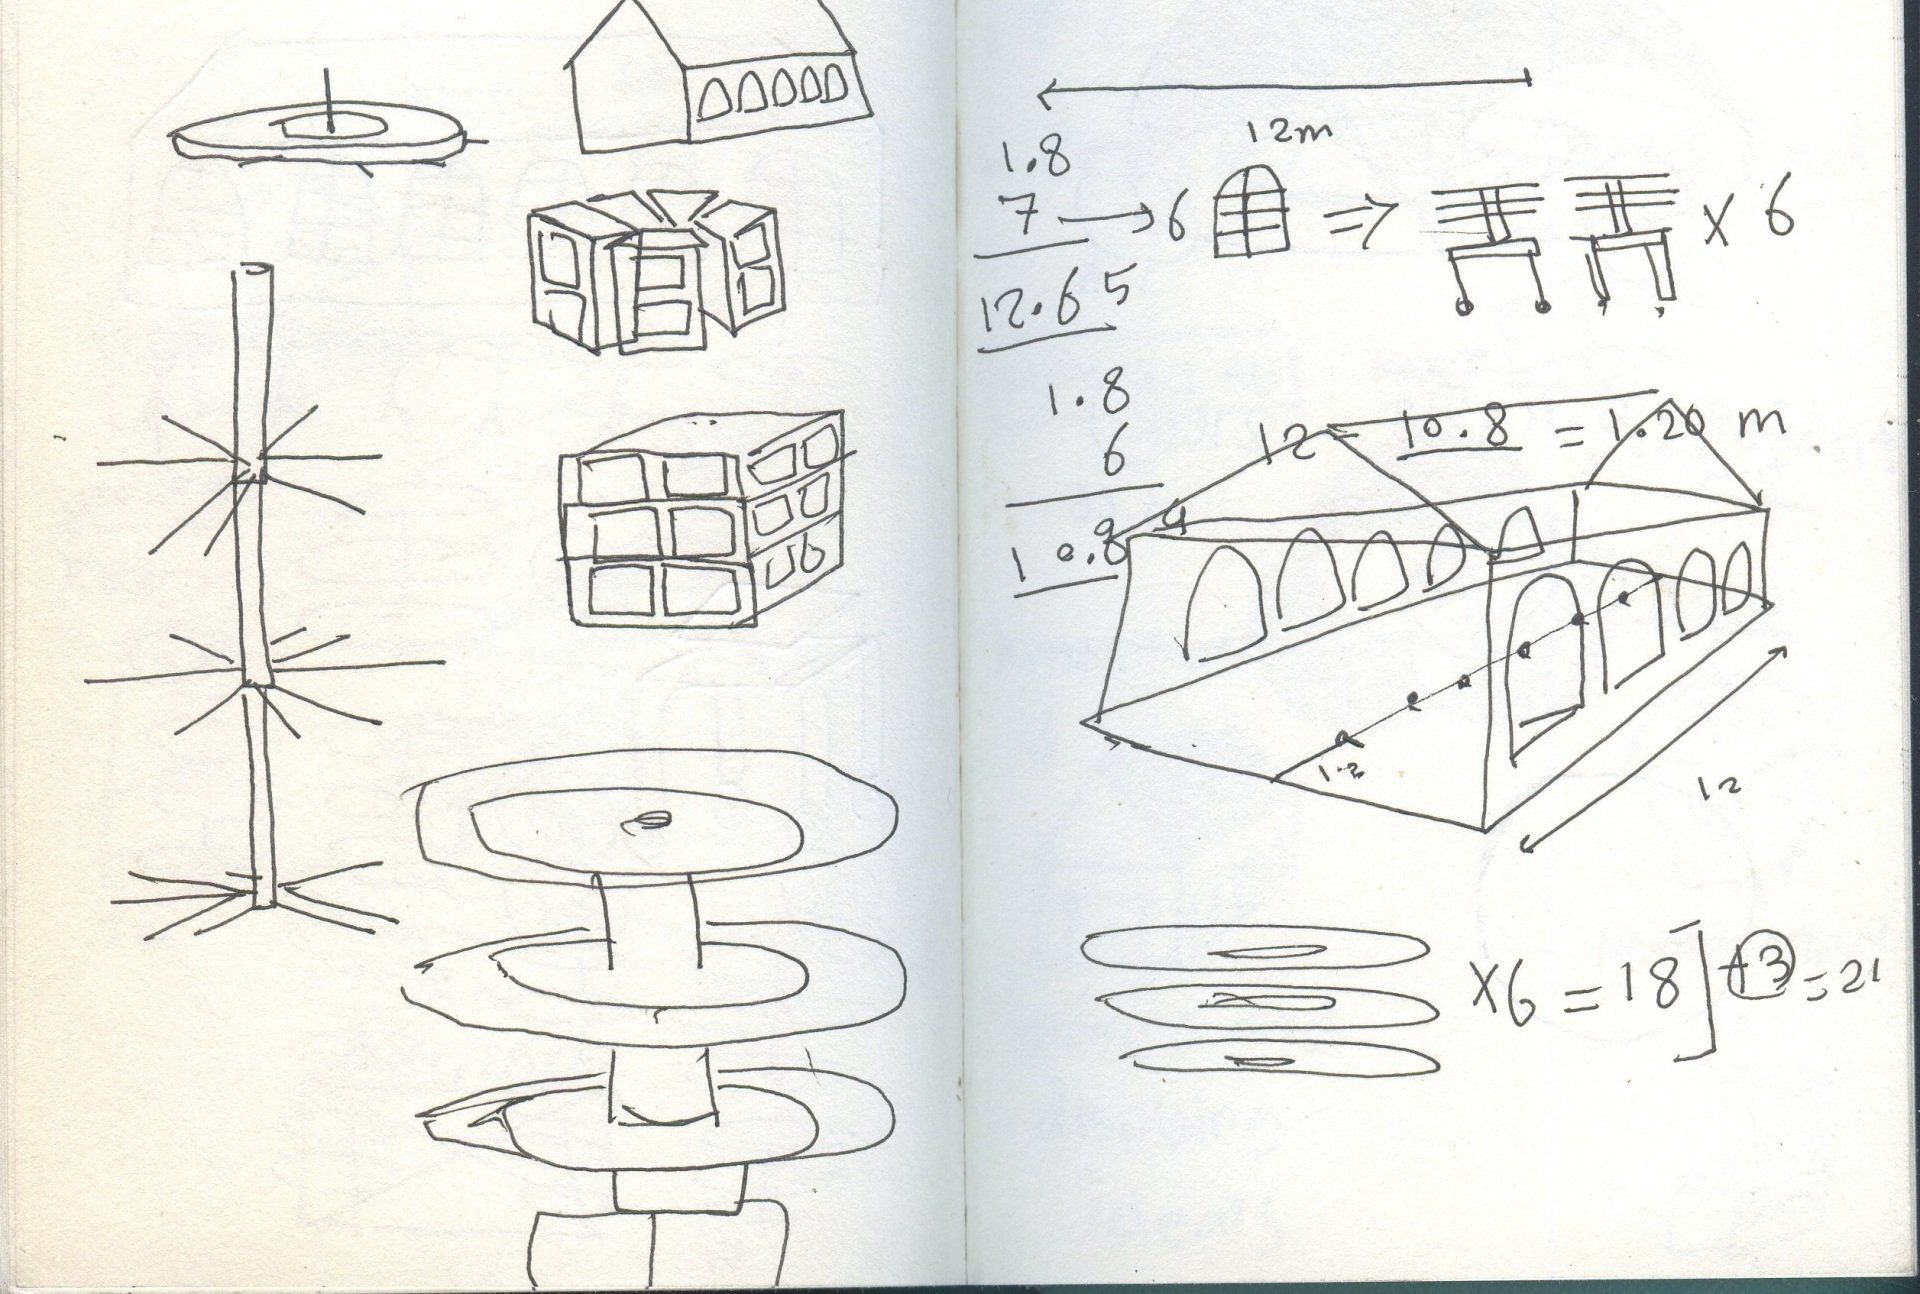 12m
1.8
7 → 6 ⇒ × 6
12.65
1.8
6
10.8
12 - 10.8 = 1.20 m
1.2
12
×6 = 18] +3 = 21